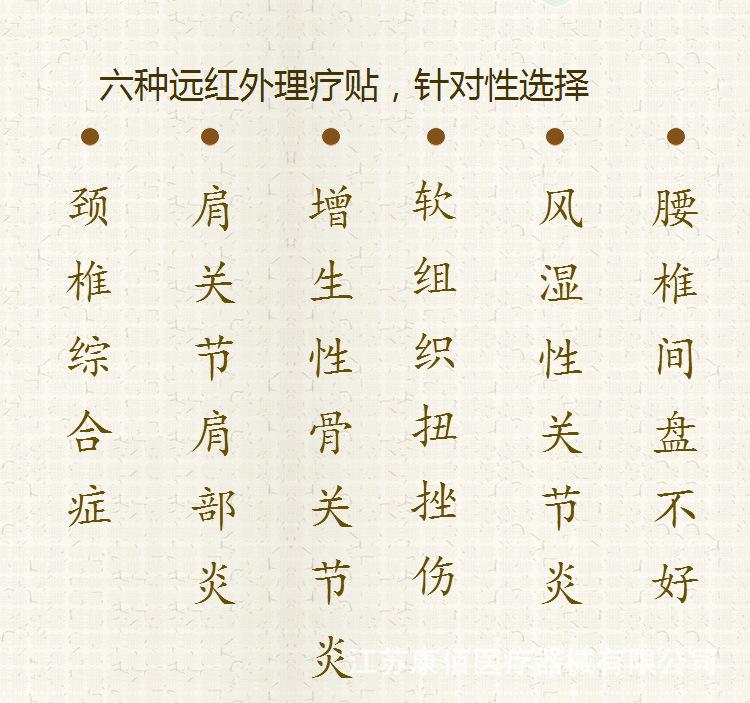 六种远红外理疗贴，针对性选择
颈椎综合症
肩关节肩部炎
增生性骨关节炎
软组织扭挫伤
风湿性关节炎
腰椎间盘不好
江苏康佰医疗器械有限公司